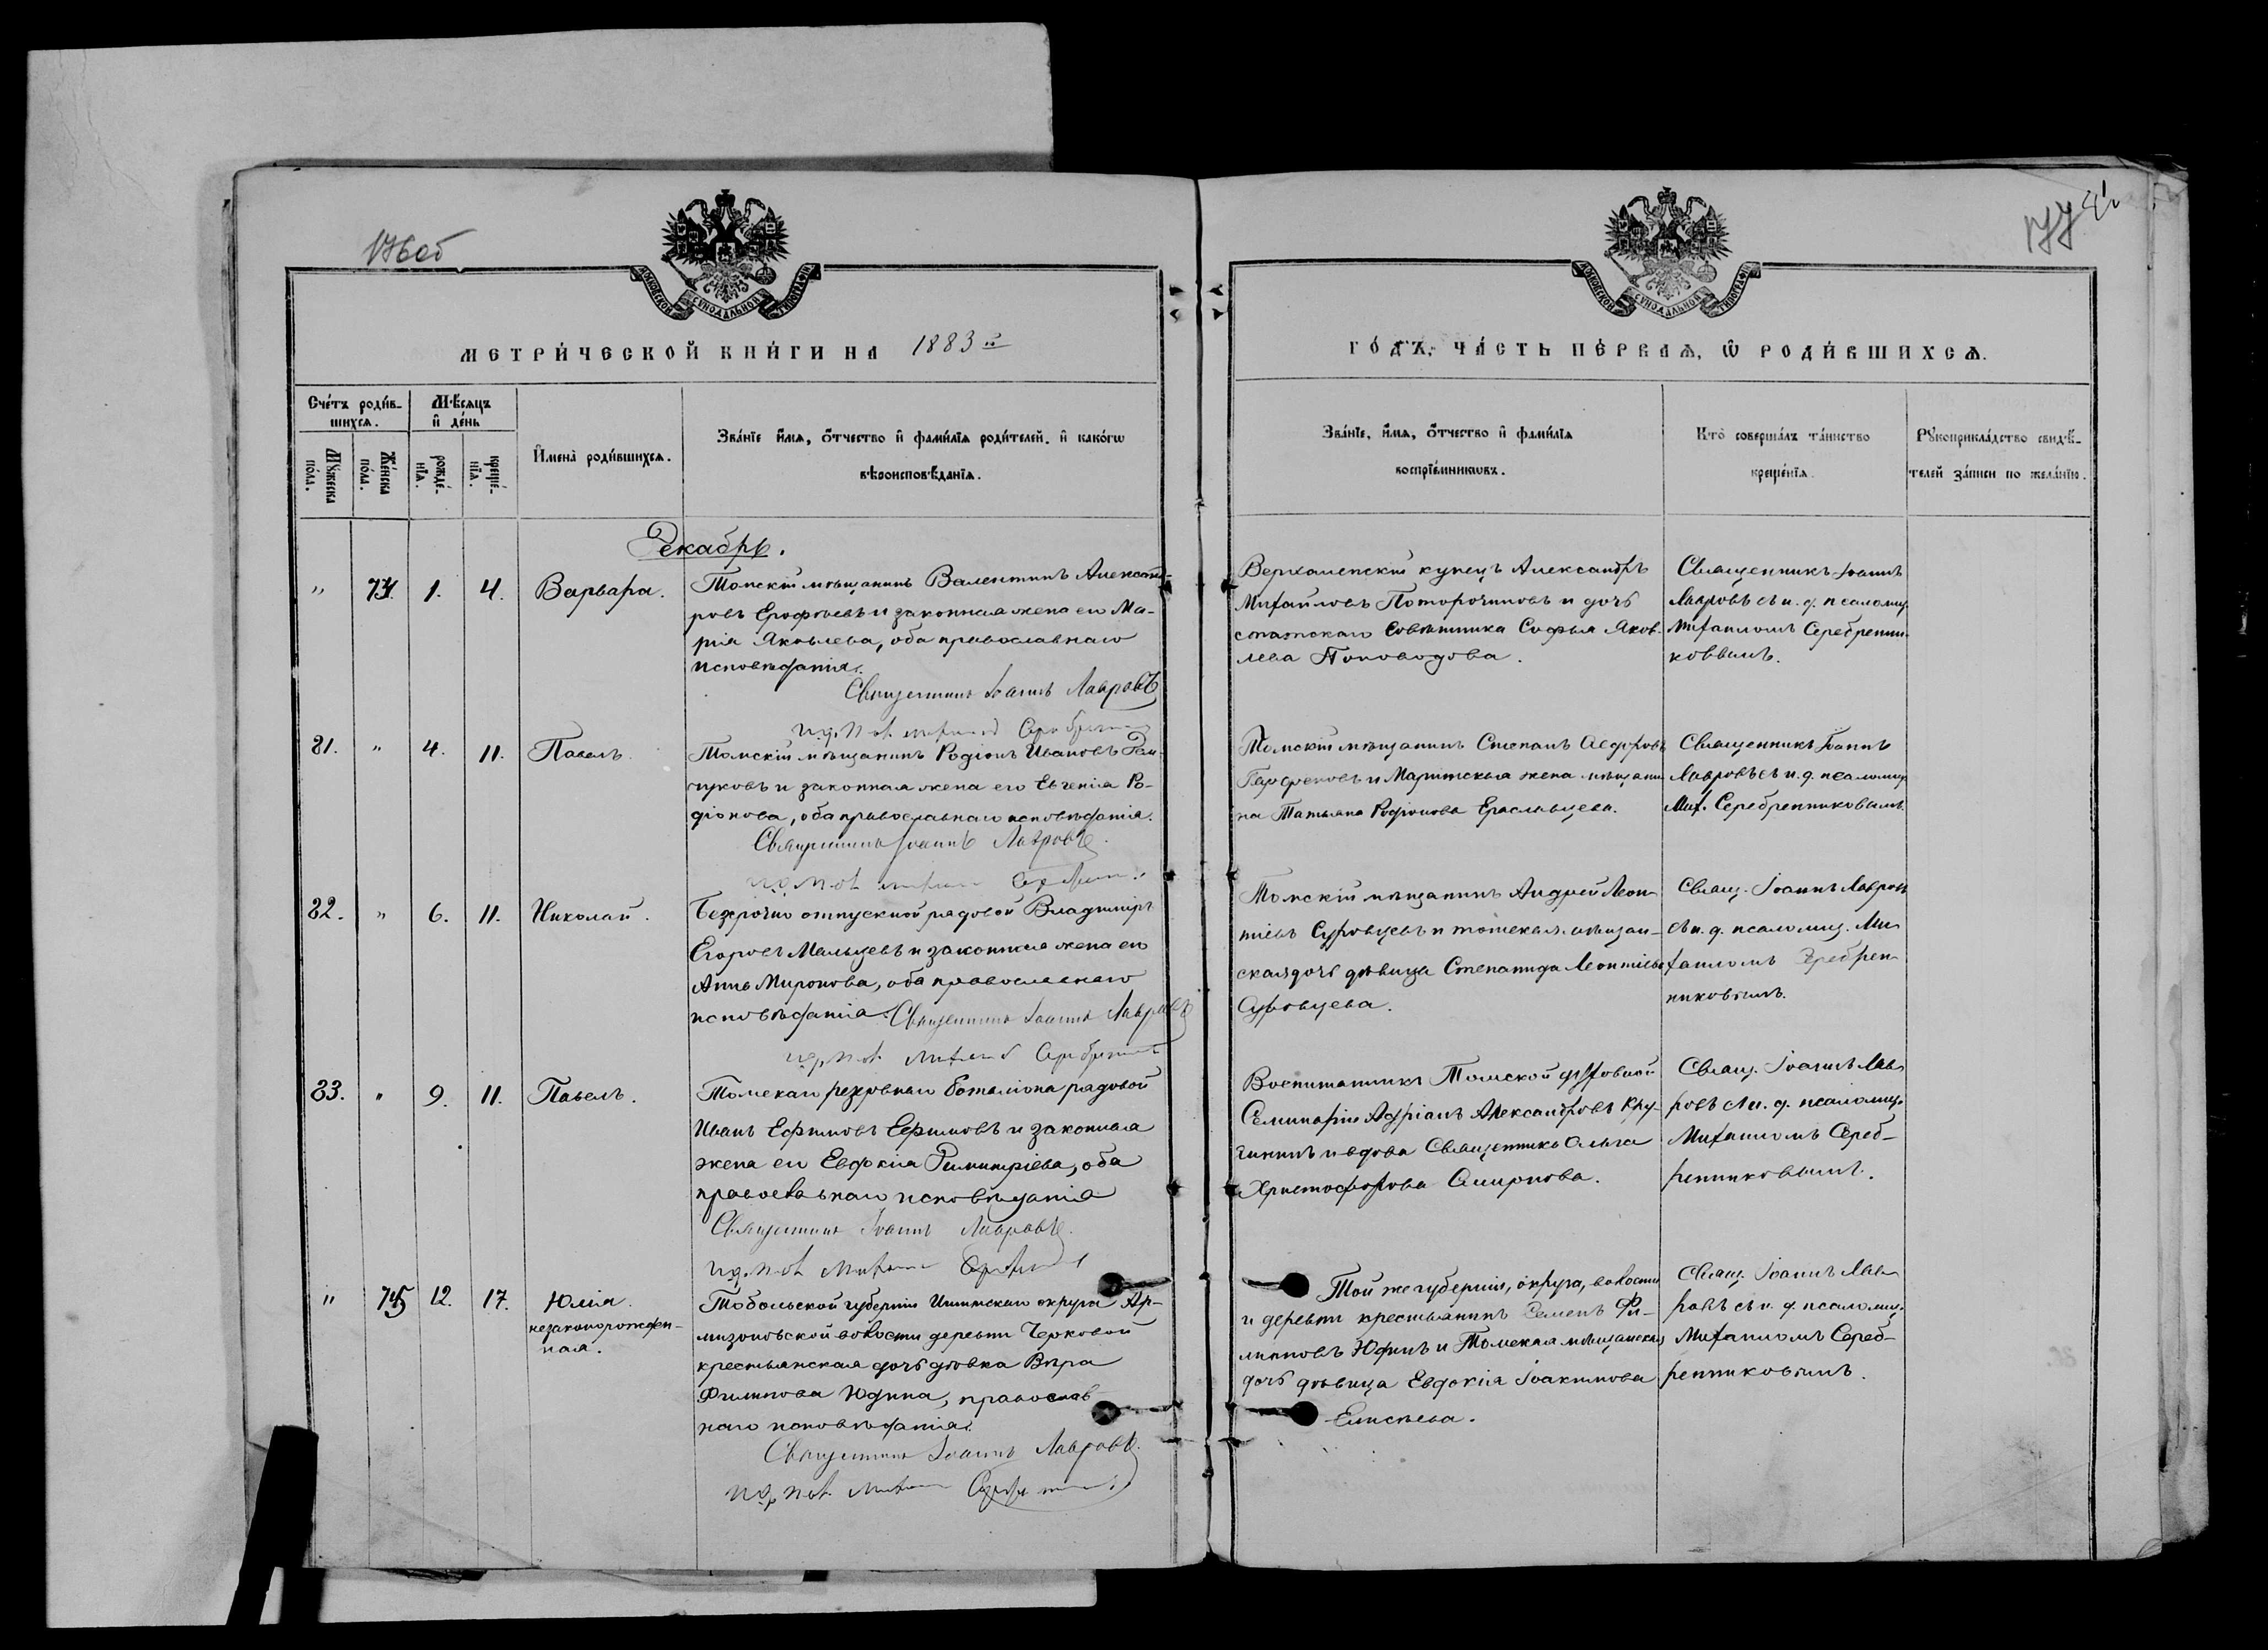 176об
177
МОСКОВСКОЙ СѴНОДАЛЬНОЙ ТИПОГРАФІИ
МОСКОВСКОЙ СѴНОДАЛЬНОЙ ТИПОГРАФІИ
МЕТРИ́ЧЕСКОЙ КНИ́ГИ НА 1883 й
ГО́ДЪ, ЧА́СТЬ ПЕ́РВАѦ, Ѿ РОДИ́ВШИХСѦ.
Сче́тъ роди́в-
шихсѧ.
Мѣ́сѧцъ
и҆ де́нь
Мꙋ́жеска
по́ла.
Же́нска
по́ла.
рожде́-
нїѧ.
креще́-
нїѧ.
И҆мена̀ роди́вшихсѧ.
Зва́нїе и҆́мѧ, ѻ҆́тчество и҆ фами́лїѧ роди́телей, и҆ како́гѡ
вѣроисповѣ́данїѧ.
Зва́нїе, и҆́мѧ, ѻ҆́тчество и҆ фами́лїѧ
воспрїе́мникѡвъ.
Кто̀ соверша́лъ та́инство
креще́нїѧ.
Рꙋкоприкла́дство свидѣ́-
телей за́писи по жела́нїю.
Декабрь.
" 74. 1. 4. Варвара.
Томскій мѣщанинъ Валентинъ Александ-
ровъ Ерофѣевъ и законная жена его Ма-
рія Яковлева, оба православнаго
исповѣданія.
Священникъ Іоаннъ Лавровъ
и. д. псал. Михаилъ Серебрен
Верхоленскій купецъ Александръ
Михайловъ Поторочиновъ и дочь
статскаго Совѣтника Софья Яков-
лева
Священникъ Іоаннъ
Лавровъ съ и. д. псаломщ.
Михаиломъ Серебренни-
ковымъ.
81. " 4. 11. Павелъ.
Томскій мѣщанинъ Родіонъ Ивановъ
и законная жена его Евгенія Ро-
діонова, оба православнаго исповѣданія.
Священникъ Іоаннъ Лавровъ.
и. д. псал. Михаилъ
Томскій мѣщанинъ Степанъ Ѳедоровъ
и Маріинская жена мѣщани-
на Татьяна Родіонова Ераславцева.
Священникъ Іоаннъ
Лавровъ съ и. д. псаломщ.
Мих. Серебренниковымъ.
82. " 6. 11. Николай.
Безсрочно отпускной рядовой Владиміръ
Егоровъ Мальцевъ и законная жена его
Анна Миронова, оба православнаго
исповѣданія. Священникъ Іоаннъ Лавровъ
и. д. псал. Михаилъ Серебрен
Томскій мѣщанинъ Андрей Леон-
тіевъ Суровцевъ и томская мѣщан-
ская дочь дѣвица Степанида Леонтіева
Суровцева.
Свящ. Іоаннъ Лавровъ
съ и. д. псаломщ. Ми-
хаиломъ Серебрен-
никовымъ.
83. " 9. 11. Павелъ.
Томскаго резервнаго баталіона рядовой
Иванъ Ефимовъ Ефимовъ и законная
жена его Евдокія Димитріева, оба
православнаго исповѣданія
Священникъ Іоаннъ Лавровъ.
и. д. псал. Михаилъ
Воспитанникъ Томской духовной
Семинаріи Адріанъ Александровъ Кру-
и вдова Священника Ольга
Христофорова Смирнова.
Свящ. Іоаннъ Лав-
ровъ съ и. д. псаломщ.
Михаиломъ Сереб-
ренниковымъ.
" 75 12. 17. Юлія.
незаконорожден-
ная.
Тобольской губерніи Ишимскаго округа Ар-
мизоновской волости деревни Черковой
крестьянская дочь дѣвка Вѣра
Филипова Юдина, православ-
наго исповѣданія.
Священникъ Іоаннъ Лавровъ.
и. д. псал. Михаилъ
Той же губерніи, округа, волости
и деревни крестьянинъ Семенъ Фи-
липповъ Юдинъ и Томская мѣщанская
дочь дѣвица Евдокія Іоакимова
Елисѣева.
Свящ. Іоаннъ Лав-
ровъ съ и. д. псаломщ.
Михаиломъ Сереб-
ренниковымъ.